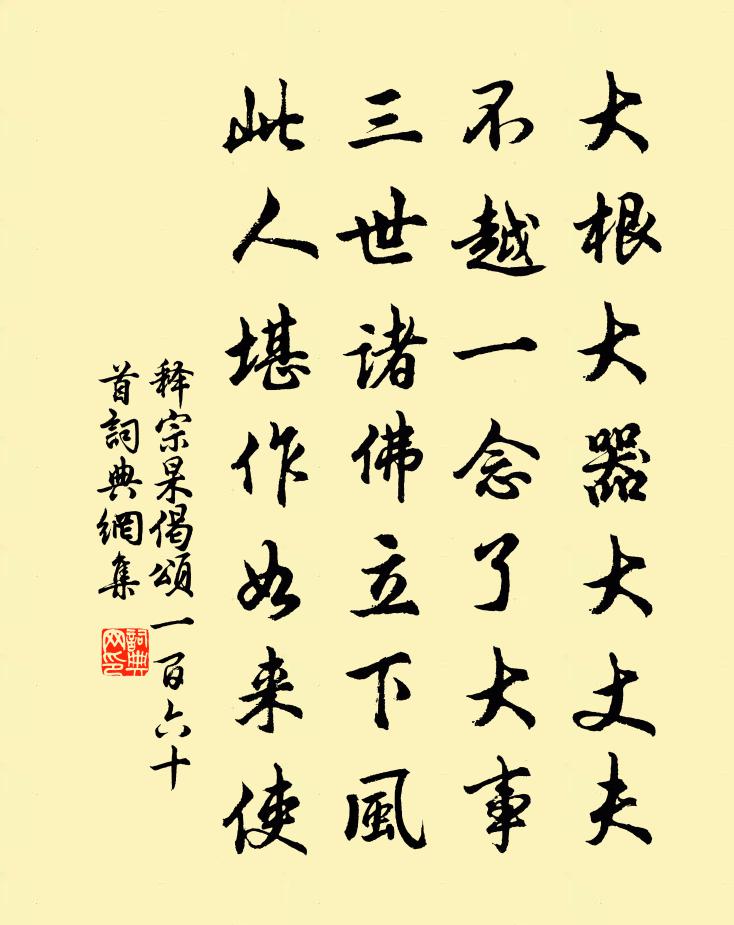 大根大器大丈夫
不越一念了大事
三世诸佛立下風
此人堪作如来使
释宗杲偈頌一百六十
首詞典網集
詞典网印